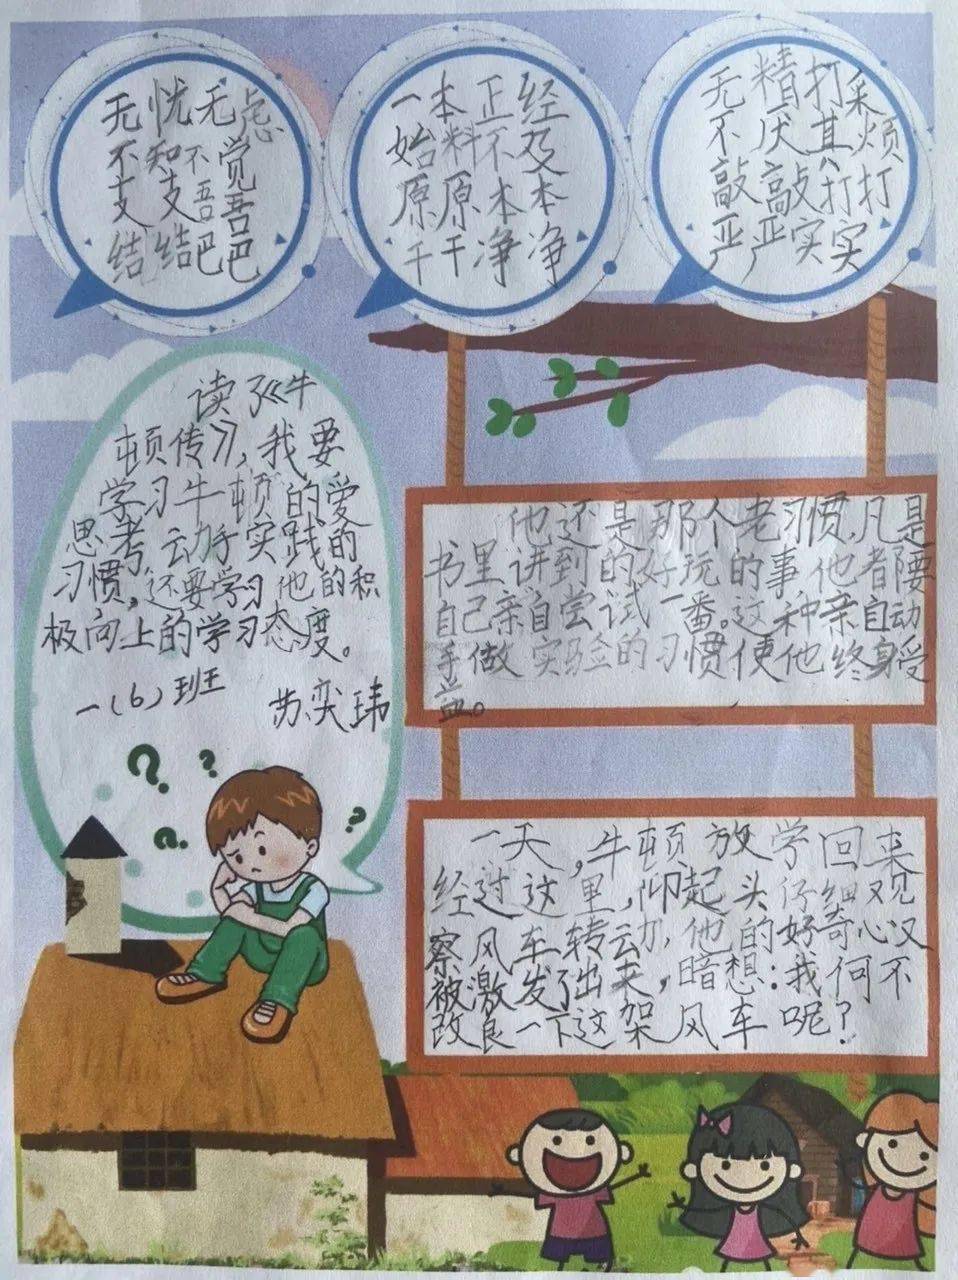 无忧无虑
不知不觉
支支吾吾
结结巴巴
一本正经
始料不及
原原本本
干干净净
无精打采
不厌其烦
敲敲打打
严严实实
读了《牛
顿传》,我要
学习牛顿的爱
思考、动手实践的
习惯,还要学习他的积
极向上的学习态度。
一(6)班 苏奕玮
他还是那个老习惯,凡是
书里讲到的好玩的事,他都要
自己亲自尝试一番。这种亲自动
手做实验的习惯使他终身受
益。
一天,牛顿放学回来
经过这里,仰起头仔细观
察风车转动,他的好奇心又
被激发了出来,暗想:我何不
改良一下这架风车呢?